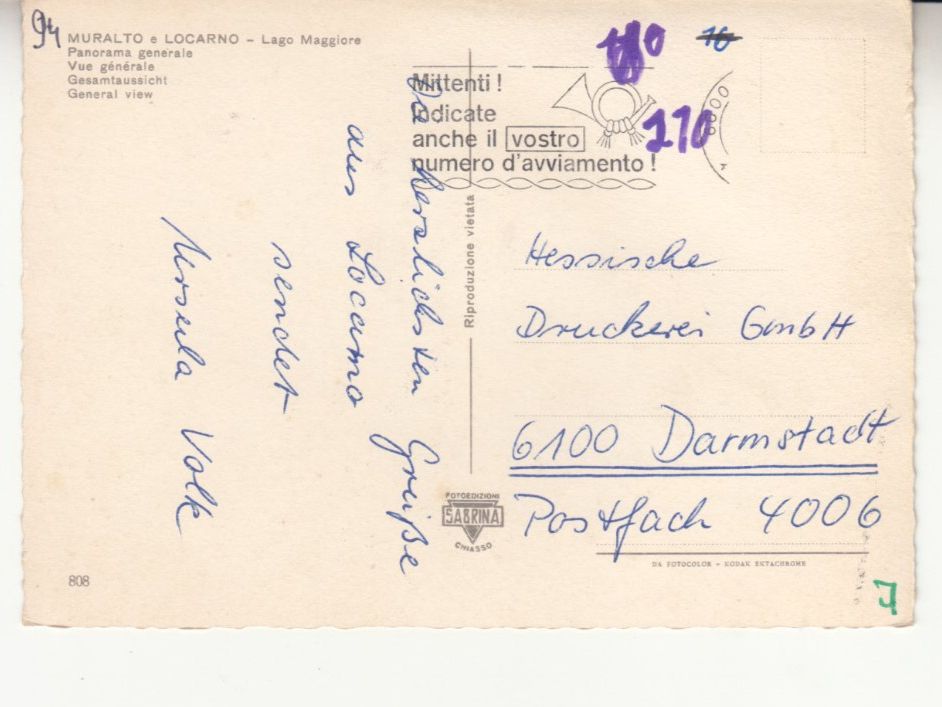 94
MURALTO e LOCARNO – Lago Maggiore
Panorama generale
Vue générale
Gesamtaussicht
General view
Mittenti !
Indicate
anche il vostro
numero d'avviamento !
180
16
210
6600
Die herzlichsten Grüße
aus Locarno
sendet
Ursula Volk
Riproduzione vietata
Hessische
Druckerei GmbH
6100 Darmstadt
Postfach 4006
FOTOEDIZIONI
SABRINA
CHIASSO
DA FOTOCOLOR - KODAK EKTACHROME
808
J